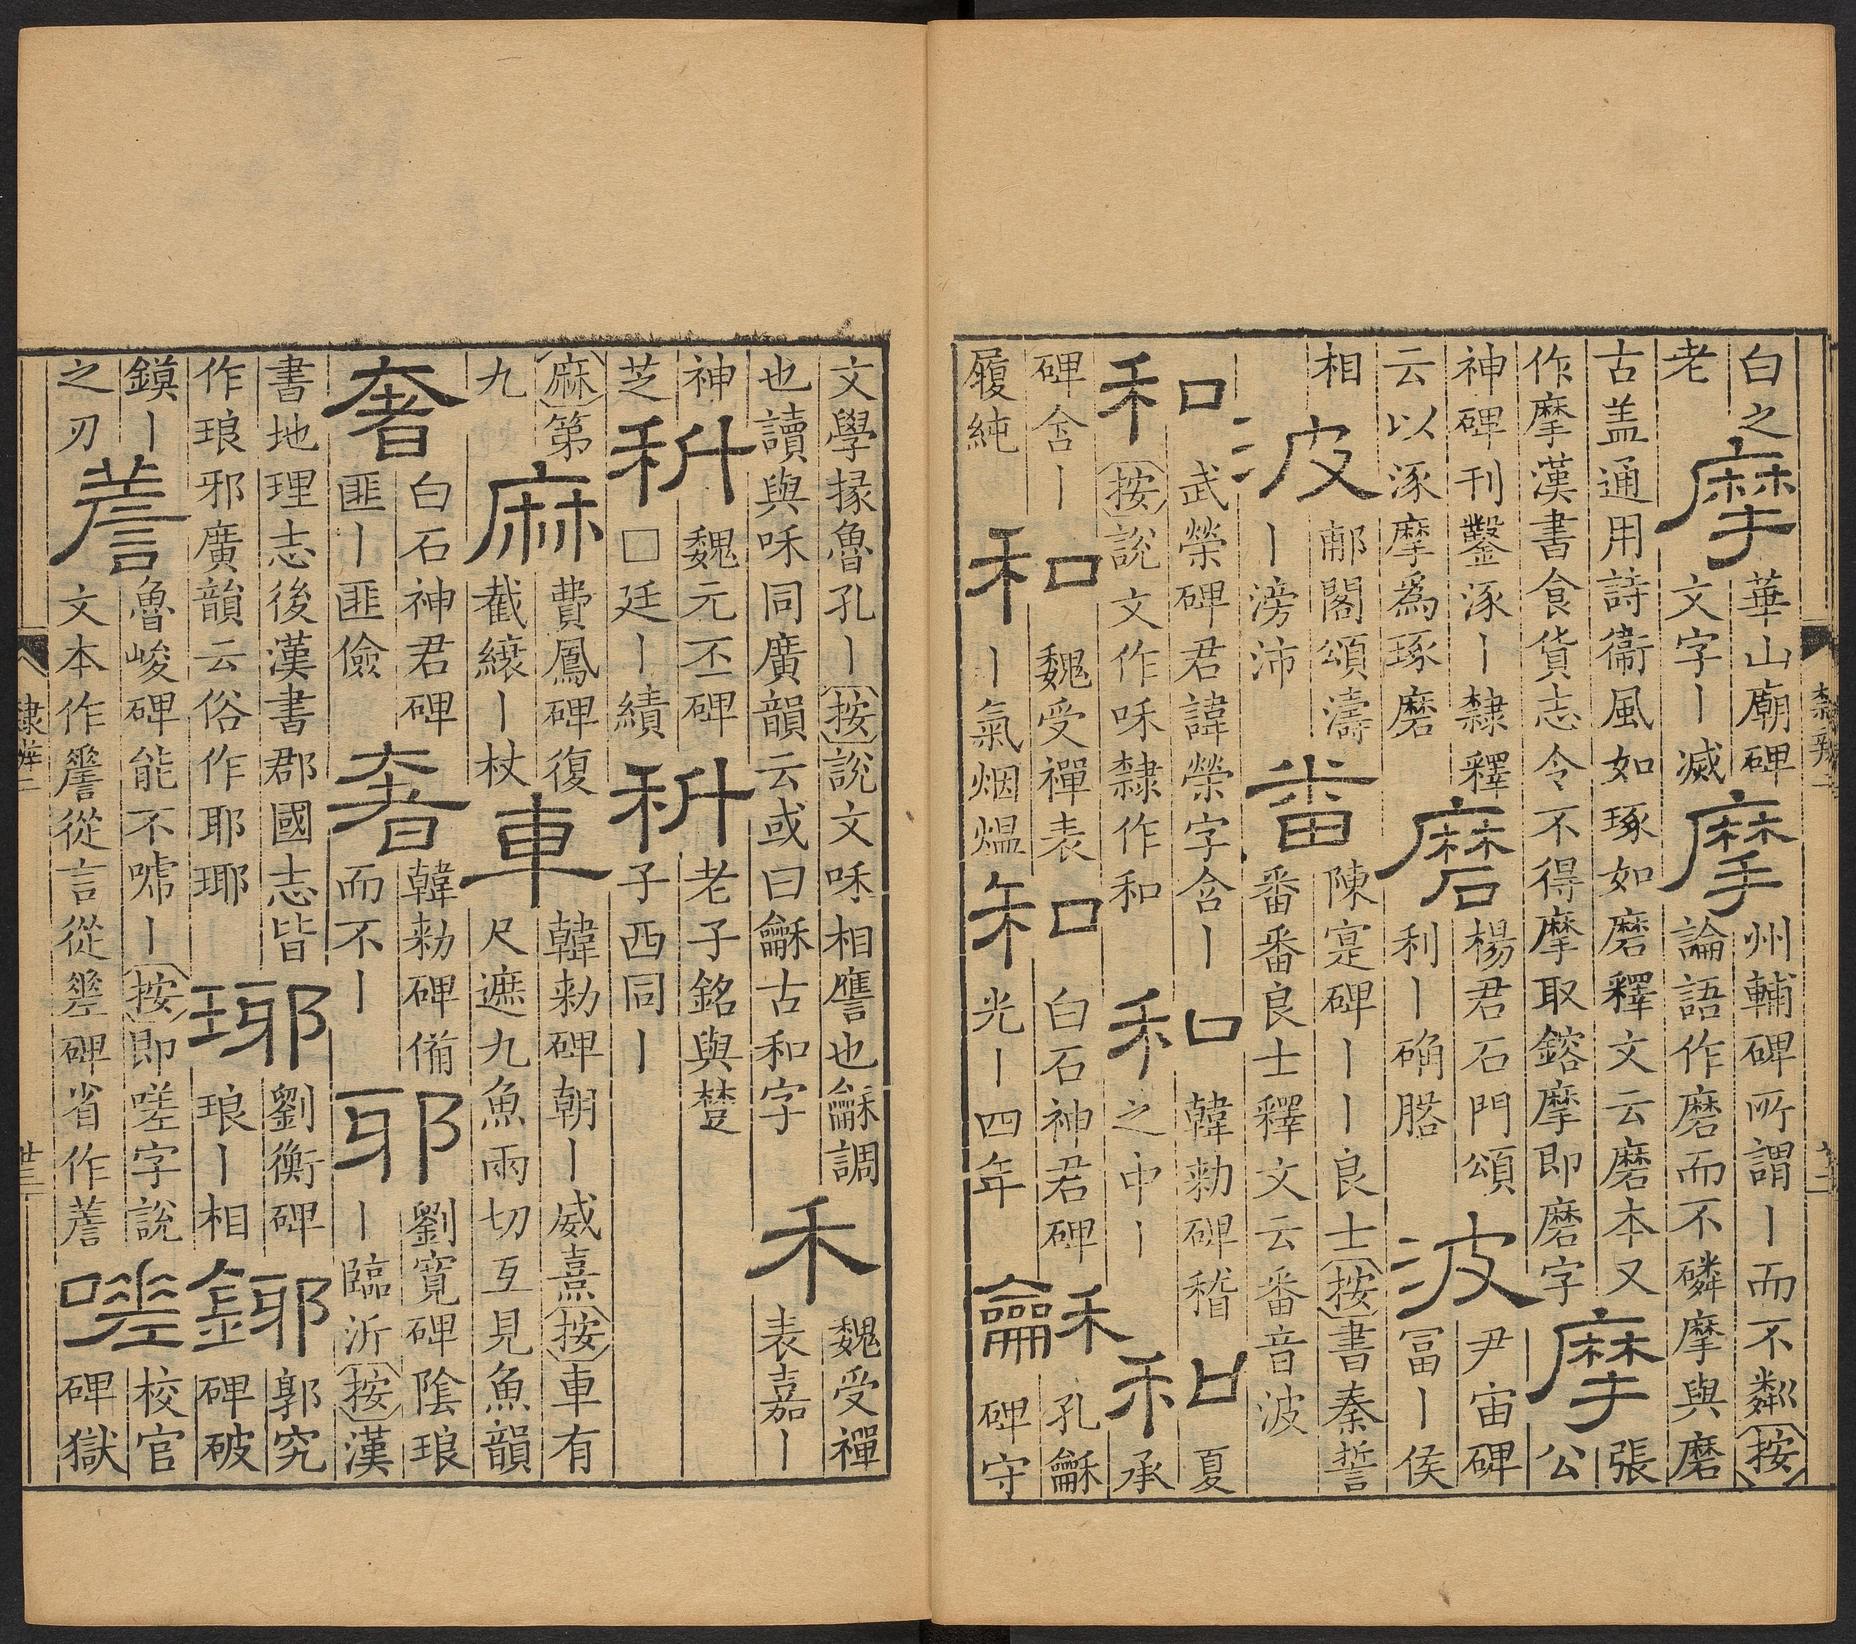 白之老摩華山廟碑文字丨滅摩州輔碑所謂丨而不粼按論語作磨而不磷摩與磨
古盖通用詩衞風如琢如磨釋文云磨本又作摩漢書食貨志令不得摩取鎔摩即磨字摩張公
神碑刊鑿涿丨隸釋云以涿摩爲琢磨磨楊君石門頌利丨确波尹宙碑冨丨侯
相波郙閣頌濤丨滂沛番陳寔碑丨丨良士按書秦誓番番良士釋文云番音波
和武榮碑君諱榮字含丨按說文作咊隸作和和韓勑碑稽之中丨和夏承
碑含丨履純和魏受禪表丨氣烟熅和白石神君碑光丨四年龢孔龢碑守
隸辨二
文學掾魯孔丨按說文咊相譍也龢調也讀與咊同廣韻云或曰龢古和字禾魏受禪表嘉丨
神芝科魏元丕碑□廷丨績科老子銘與楚子西同丨
麻第九麻費鳳碑復截縗丨杖車韓勑碑朝丨威熹按車有尺遮九魚兩切互見魚韻
奢白石神君碑匪丨匪儉奢韓勑碑俻而不丨耶劉寬碑陰琅丨臨沂按漢
書地理志後漢書郡國志皆作琅邪廣韻云俗作耶瑘瑘劉衡碑琅丨相鋣郭究碑破
鏌丨之刃魯峻碑能不嘑丨按即嗟字說文本作從言從碑省作嗟校官碑獄
隸辨二